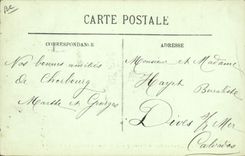 CARTE POSTALE
CORRESPONDANCE
ADRESSE
Nos bonnes amitiés
de Cherbourg
Marthe et Georges
Monsieur et Madame
Hayet
Dives s/ Mer
Calvados